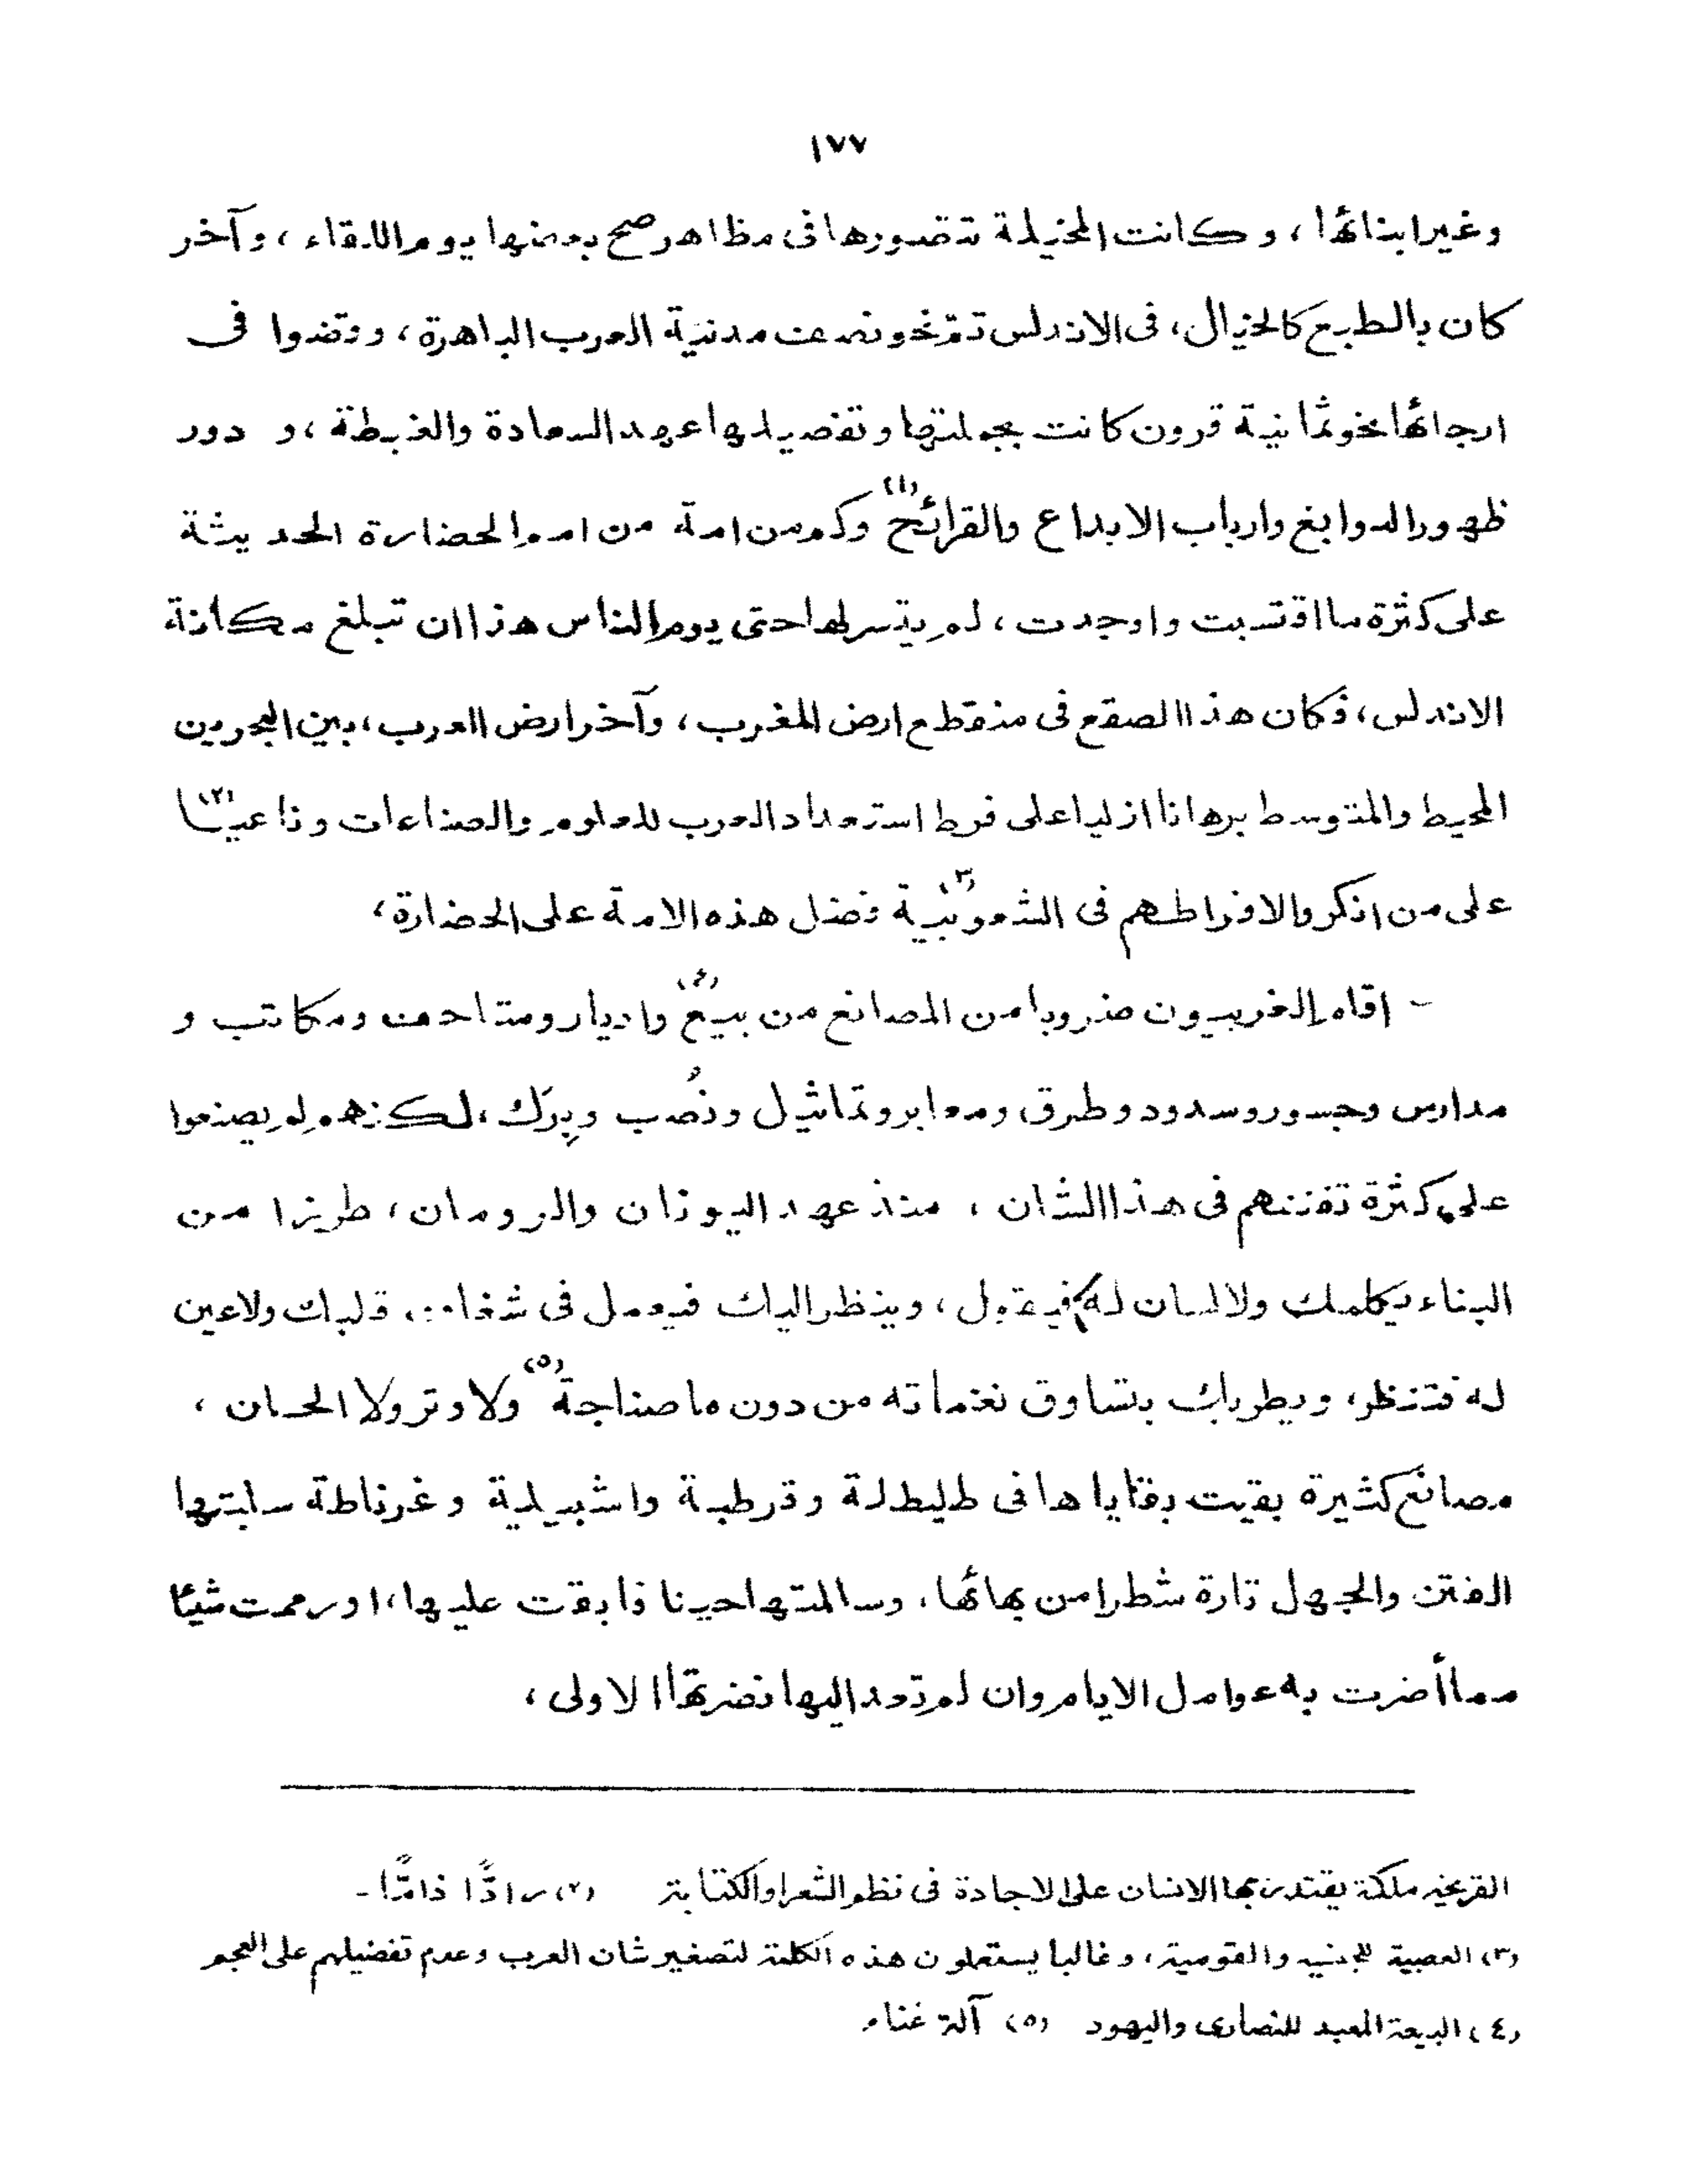 ١٧٧
وغير ابنائها، وكانت المخيلة تتصورها فى مظاهر صح بعضها يوم اللقاء، وآخر
كان بالطبع كالخيال، فى الاندلس تمت نحو نصعت مدنية العرب الباهرة، وقضوا فى
ارجائها نحو ثمانية قرون كانت بجملتها وتفصيلها عهد السعادة والغبطة، و دور
ظهور النوابغ وارباب الابداع والقرائح (١) وكم من امة من امم الحضارة الحديثة
على كثرة ما اقتبست واوجدت، لم يتسر لها حتى يوم الناس هذا ان تبلغ مكانة
الاندلس، فكان هذا الصقع فى منقطع ارض المغرب، وآخر ارض العرب، بين البحرين
المحيط والمتوسط برهانا ازليا على فرط استعداد العرب للعلوم والصناعات وناعيا (٢)
على من انكروا لافراطهم فى الشعوبية (٣) فضل هذه الامة على الحضارة،
- اقام الغربيون ضروبا من المصانع من بيع (٤) واديار ومتاحف ومكاتب و
مدارس وجسور وسدود وطرق ومعابر وتماثيل ونُصُب وبِرَك، لكنهم لم يصنعوا
على كثرة تفننهم فى هذا الشان، منذ عهد اليونان والرومان، طرزا من
البناء يكلمك ولا لسان له فيقول، وينظر اليك فيعمل فى شغاف قلبك ولا عين
له فتنظر، ويطربك بتساوق نغماته من دون ما صناجة (٥) ولا وتر ولا الحان،
مصانع كثيرة بقيت بقايا ها فى طليطلة وقرطبة واشبيلية وغرناطة سلبتها
الفتن والجهل تارة شطرا من بهائها، وسالمتها حينا فابقت عليها، او رممت شيئا
مما أضرت به عوامل الايام وان لم تعد اليها نضرتها الاولى،
القريحة ملكة يقتدر بها الانسان على الاجادة فى نظم الشعر او الكتابة (٢) رادًّا ذامًّا -
(٣) العصبية للجنسيه والقومية، وغالبا يستعملون هذه الكلمة لتصغير شان العرب وعدم تفضيلهم على العجم
(٤) البيعة المعبد للنصارى واليهود (٥) آلة غناء